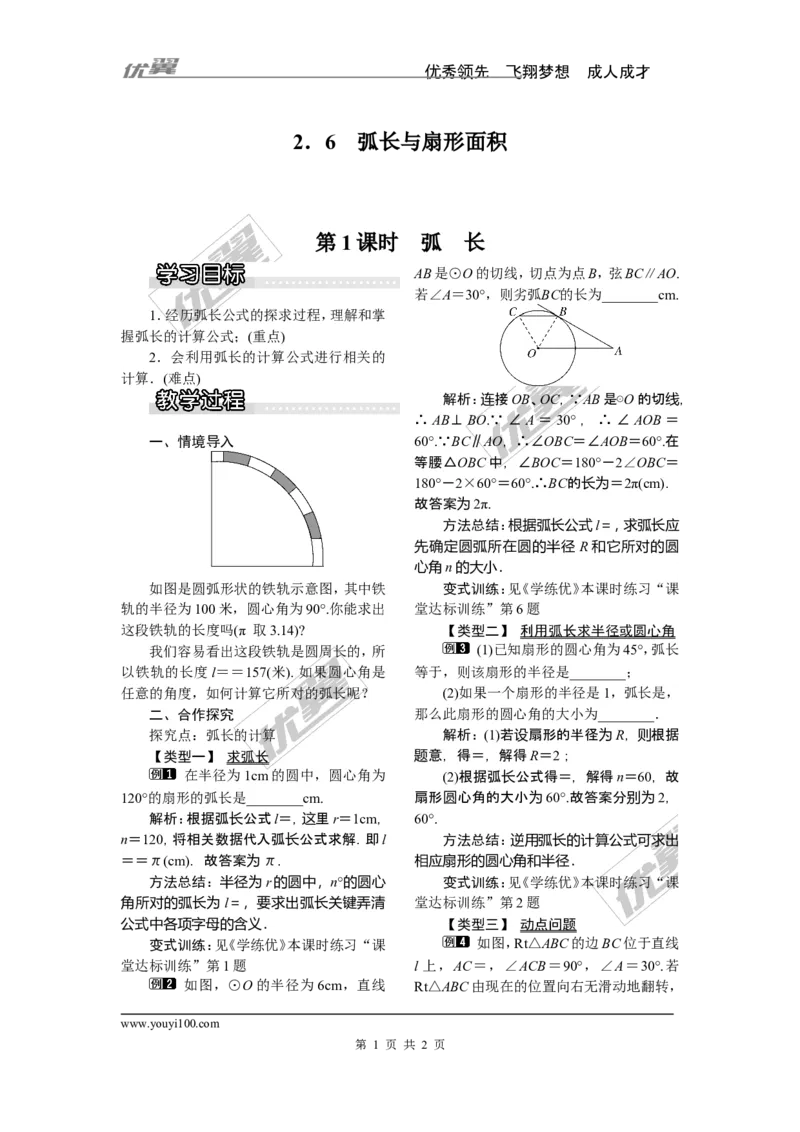 优翼
优秀领先　飞翔梦想　成人成才
2．6　弧长与扇形面积
第1课时　弧　长
学习目标
1．经历弧长公式的探求过程，理解和掌
握弧长的计算公式；(重点)
2．会利用弧长的计算公式进行相关的
计算．(难点)
教学过程
一、情境导入
如图是圆弧形状的铁轨示意图，其中铁
轨的半径为100米，圆心角为90°.你能求出
这段铁轨的长度吗(π 取3.14)?
我们容易看出这段铁轨是圆周长的，所
以铁轨的长度 l＝＝157(米). 如果圆心角是
任意的角度，如何计算它所对的弧长呢？
二、合作探究
探究点：弧长的计算
【类型一】 求弧长
例1 在半径为1cm的圆中，圆心角为
120°的扇形的弧长是________cm.
解析：根据弧长公式l＝，这里r＝1cm，
n＝120，将相关数据代入弧长公式求解. 即l
＝＝π(cm). 故答案为 π.
方法总结：半径为r的圆中，n°的圆心
角所对的弧长为 l＝，要求出弧长关键弄清
公式中各项字母的含义．
变式训练：见《学练优》本课时练习“课
堂达标训练”第1题
例2 如图，⊙O的半径为6cm，直线
AB是⊙O的切线，切点为点B，弦BC∥AO.
若∠A＝30°，则劣弧BC的长为________cm.
C B
O A
解析：连接OB、OC，∵AB是○O的切线，
∴ AB⊥ BO.∵ ∠A＝30°，∴∠AOB＝
60°.∵BC∥AO，∴∠OBC＝∠AOB＝60°.在
等腰△OBC中，∠BOC＝180°－2∠OBC＝
180°－2×60°＝60°.∴BC的长为＝2π(cm).
故答案为2π.
方法总结：根据弧长公式l＝，求弧长应
先确定圆弧所在圆的半径 R 和它所对的圆
心角n的大小．
变式训练：见《学练优》本课时练习“课
堂达标训练”第6题
【类型二】 利用弧长求半径或圆心角
例3 (1)已知扇形的圆心角为45°，弧长
等于，则该扇形的半径是________；
(2)如果一个扇形的半径是1，弧长是，
那么此扇形的圆心角的大小为________．
解析：(1)若设扇形的半径为R，则根据
题意，得＝，解得R＝2；
(2)根据弧长公式得＝，解得n＝60，故
扇形圆心角的大小为60°.故答案分别为2，
60°.
方法总结：逆用弧长的计算公式可求出
相应扇形的圆心角和半径．
变式训练：见《学练优》本课时练习“课
堂达标训练”第2题
【类型三】 动点问题
例4 如图，Rt△ABC的边BC位于直线
l上，AC＝，∠ACB＝90°，∠A＝30°.若
Rt△ABC由现在的位置向右无滑动地翻转，
www.youyi100.com
第 1 页 共 2 页